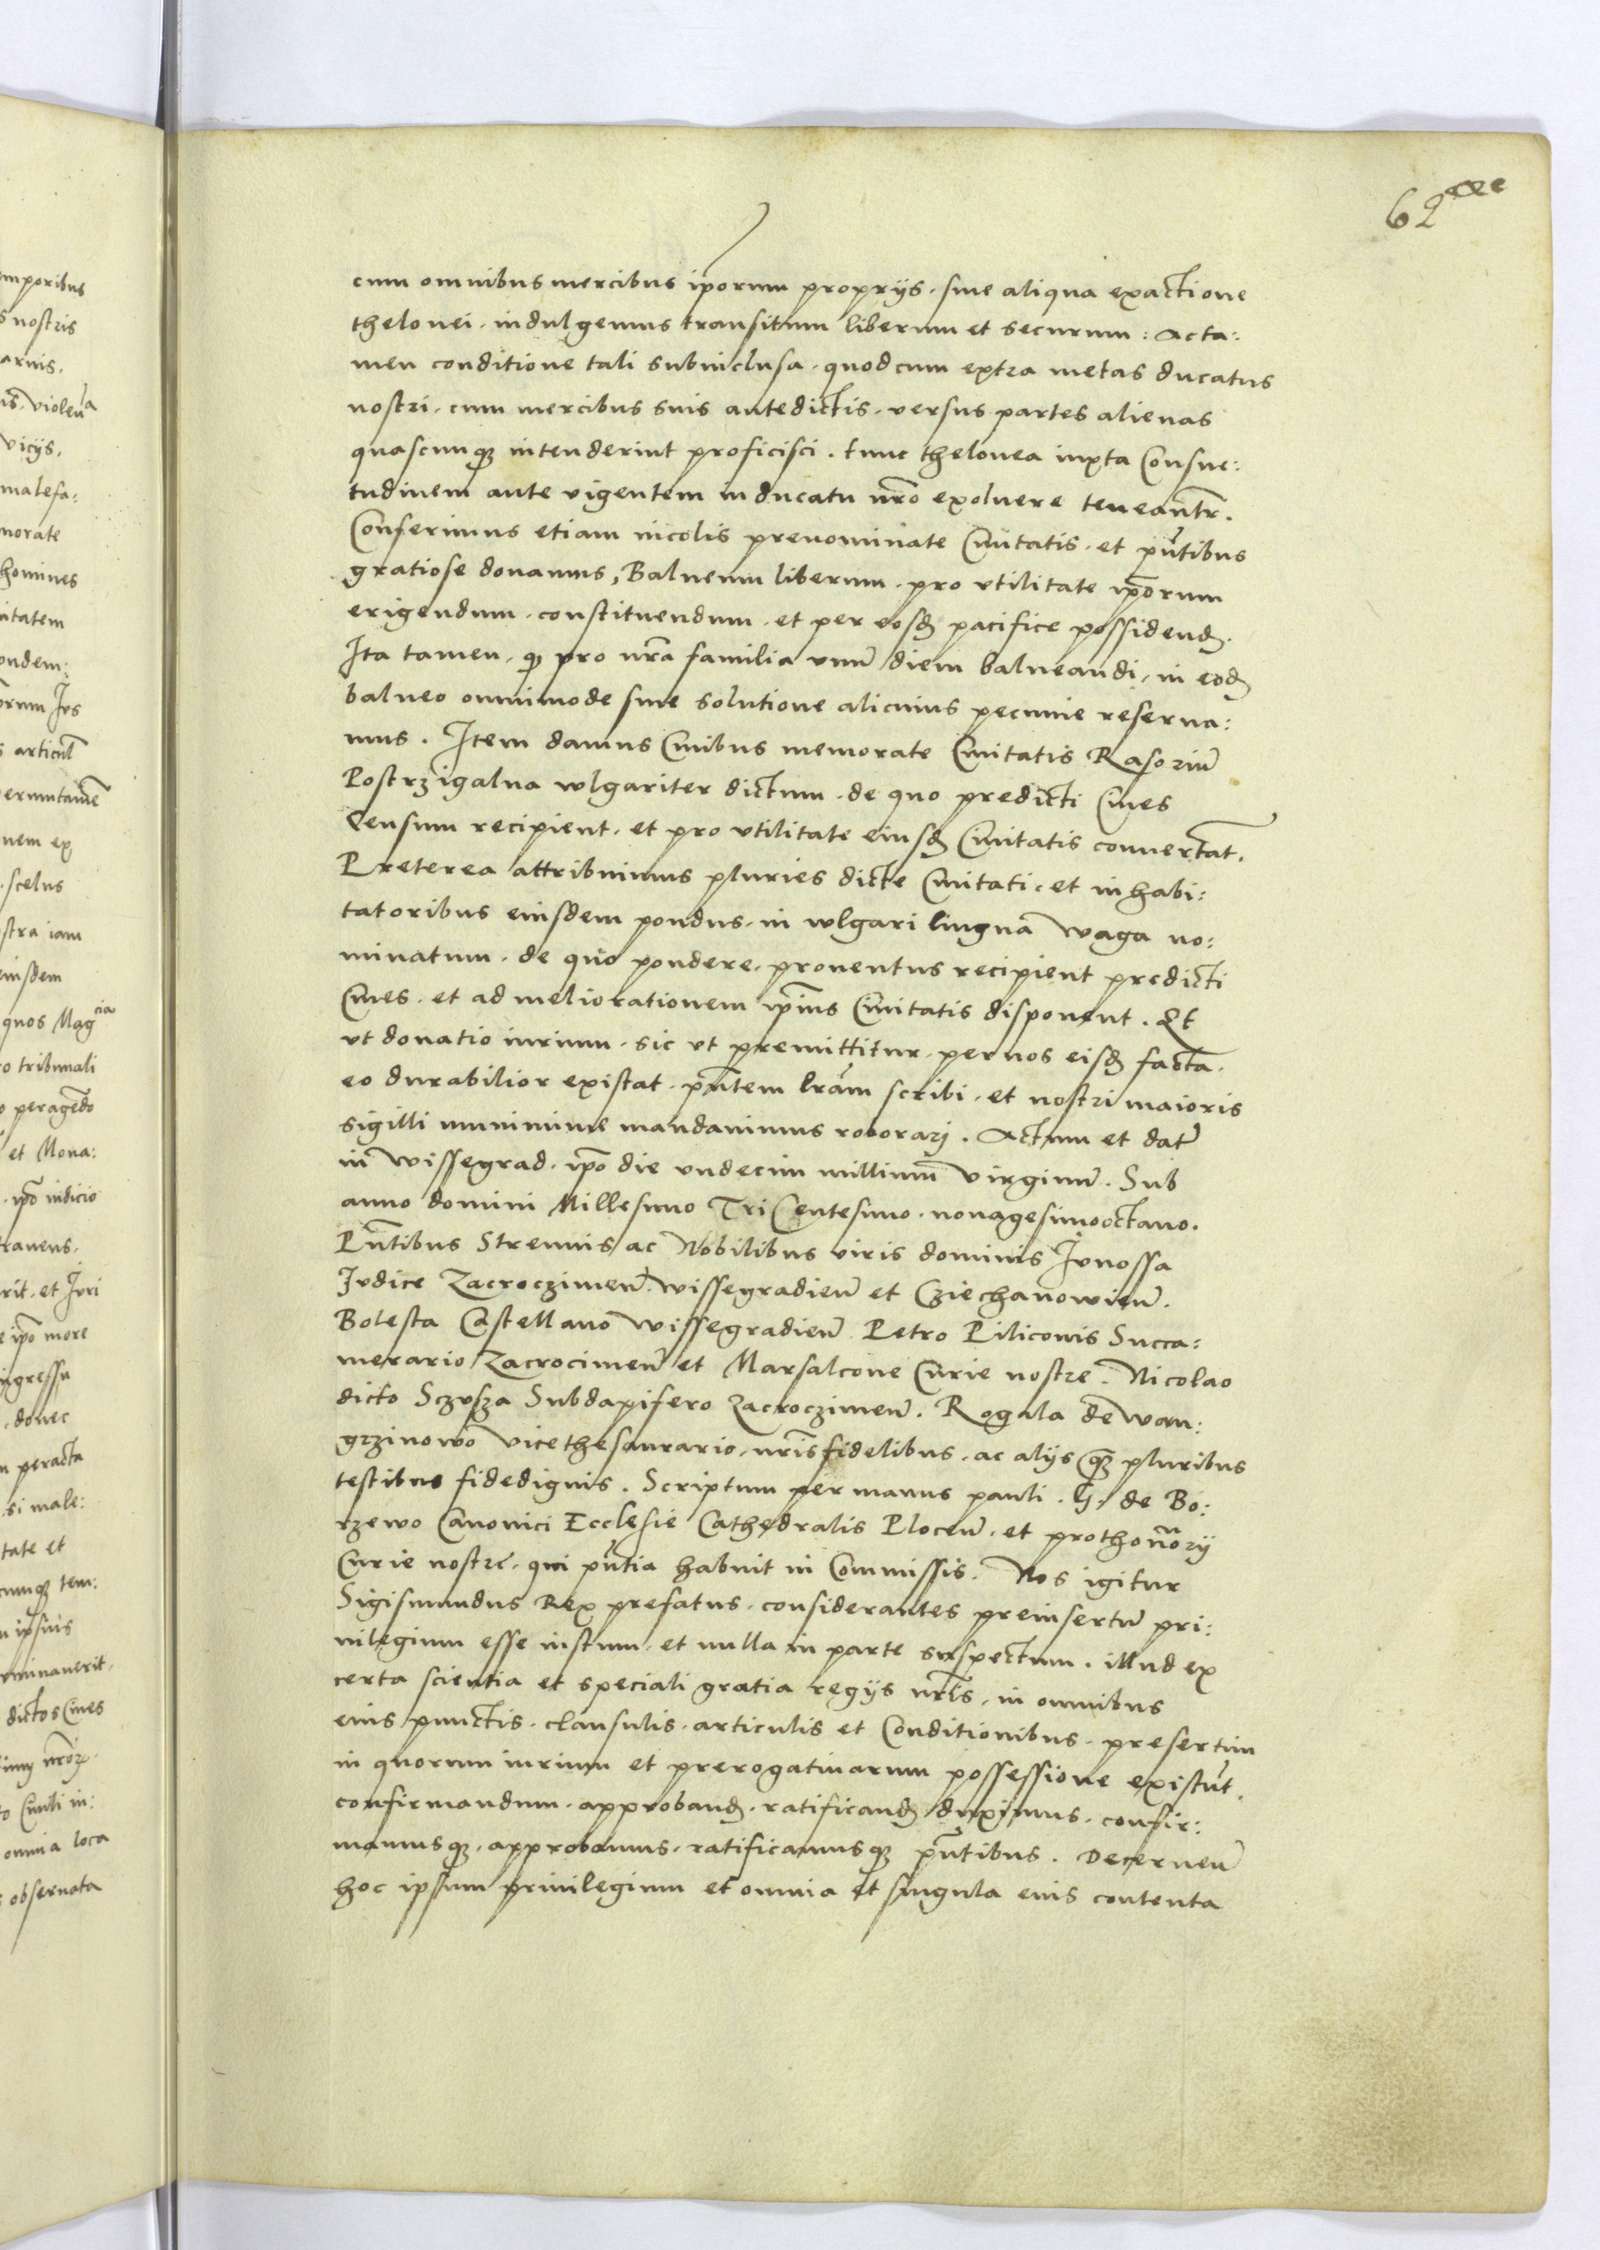 62
cum omnibus mercibus ip̄orum proprijs · sine aliqua exactione
thelonei · indulgemus transitum liberum et securum : Acta:
men conditione tali subinclusa · quod cum extra metas ducatus
nostri · cum mercibus suis antedictis · versus partes alienas
quascunq₃ intenderint proficisci · tunc thelonea iuxta Consue:
tudinem ante vigentem in ducatu nr̄o exoluere teneant̄r ·
Conferimus etiam incolis prenominate Ciuitatis · et pn̄tibus
gratiose donamus, Balneum liberum · pro vtilitate ip̄orum
erigendum · constituendum · et per eosd̄ pacifice possidend̄ ·
Ita tamen · q₃ pro nr̄a familia vnū diem balneandi, in eod̄
balneo omnimode sine solutione alicuius pecunie reserua:
mus · Item damus Ciuibus memorate Ciuitatis Rasoriū
Postrzigalna wlgariter dictum · de quo predicti Ciues
Censum recipient · et pro vtilitate eiusd̄ Ciuitatis conuertāt ·
Preterea attribuimus pluries dicte Ciuitati · et inhabi:
tatoribus eiusdem pondus · in wlgari lingua Waga no:
minatum · de quo pondere · prouentus recipient predicti
Ciues · et ad meliorationem ip̄ius Ciuitatis disponent · Et
vt donatio iurium · sic vt premittitur · per nos eisd̄ facta ·
eo durabilior existat · pn̄tem lr̄am scribi · et nostri maioris
sigilli munimine mandauimus roborarj · Actum et datū
in Wissegrad · ip̄o die vndecim millium Virginū · Sub
anno domini Millesimo TriCentesimo · nonagesimooctauo ·
Pn̄tibus Strenuis ac Nobilibus viris dominis Junossa
Judice Zacroczimen̄ · Wissegradien̄ et Cziechanowien̄ ·
Bolesta Castellano Wissegradien̄ Petro Piliconis Succa:
merario Zacrocimen̄ et Marsalcone Curie nostre · Nicolao
dicto Sczusza Subdapifero Zacroczimen̄ · Rogala de Wan:
grzinowo Vicethesaurario, nr̄is fidelibus · ac alijs q₃ pluribus
testibus fidedignis · Scriptum per manus pauli · G · de Bo:
rzewo Canonici Ecclesie Cathedralis Plocen̄ · et prothon̄orij
Curie nostre · qui pn̄tia habuit in Commissis · Nos igitur
Sigismundus Rex prefatus · considerantes preinsertū pri:
uilegium esse iustum · et nulla in parte suspectum · illud ex
certa scientia et speciali gratia regijs nr̄is, in omnibus
eius punctis · clausulis · articulis et Conditionibus · presertim
in quorum iurium et prerogatiuarum possessione existūt ·
confirmandum · approband̄ · ratificand̄ duximus · confir:
mamusq₃ · approbamus · ratificamusq₃ pn̄tibus · Decernen̄
hoc ipsum priuilegium et omnia et singula eius contenta